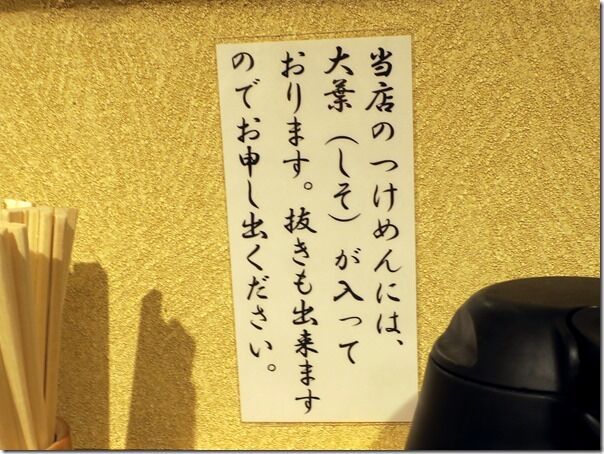 当店のつけめんには、
大葉（しそ）が入って
おります。抜きも出来ます
のでお申し出ください。